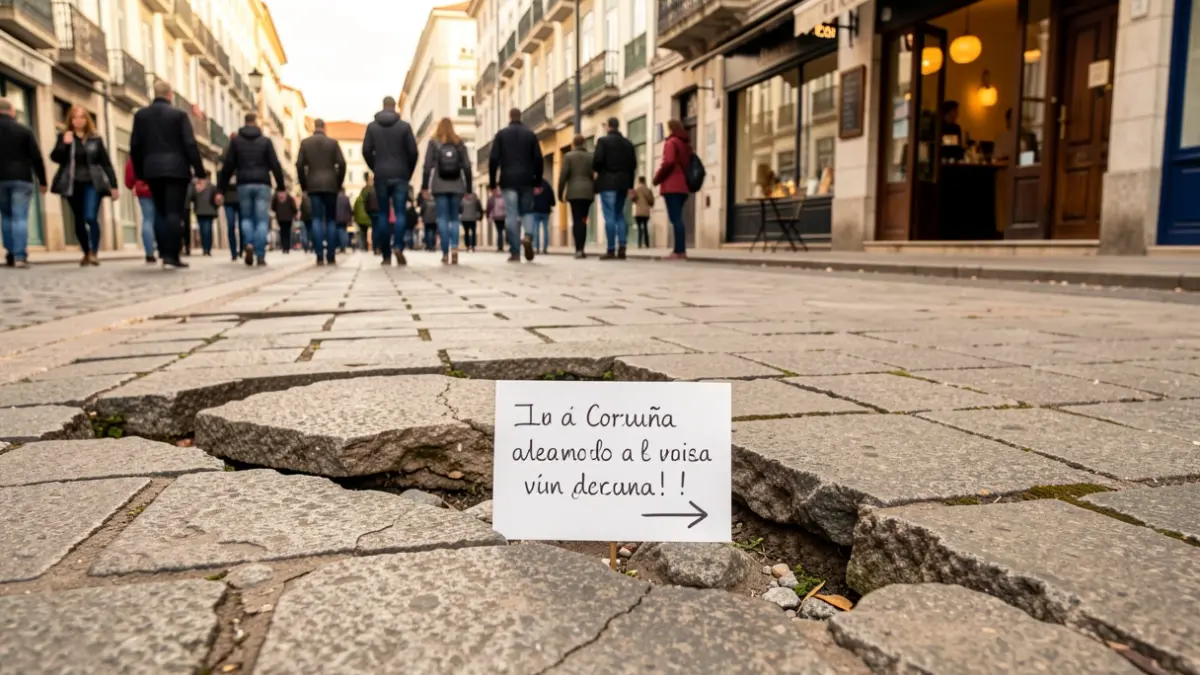 In á Coruuña
aleamolo a l voisa
vín decuna! !